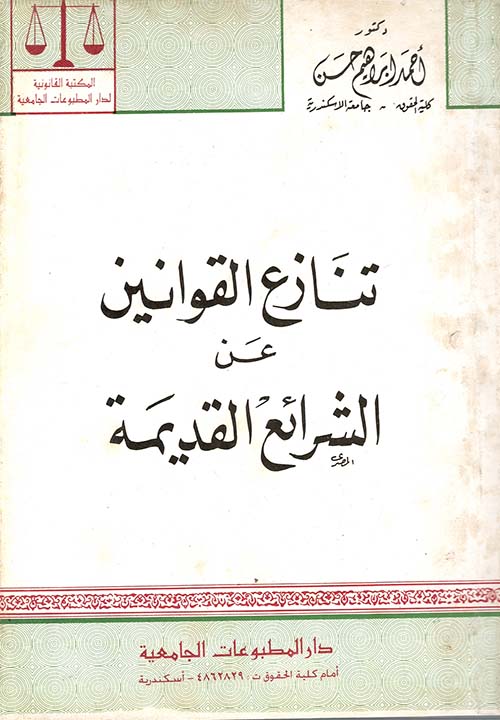 المكتبة القانونية
لدار المطبوعات الجامعية
دكتور
أحمد إبراهيم حسن
كلية الحقوق - جامعة الاسكندرية
تنازع القوانين
عن
الشرائع القديمة
المصرى
دار المطبوعات الجامعية
أمام كلية الحقوق ت: ٤٨٦٢٨٢٩ - أسكندرية